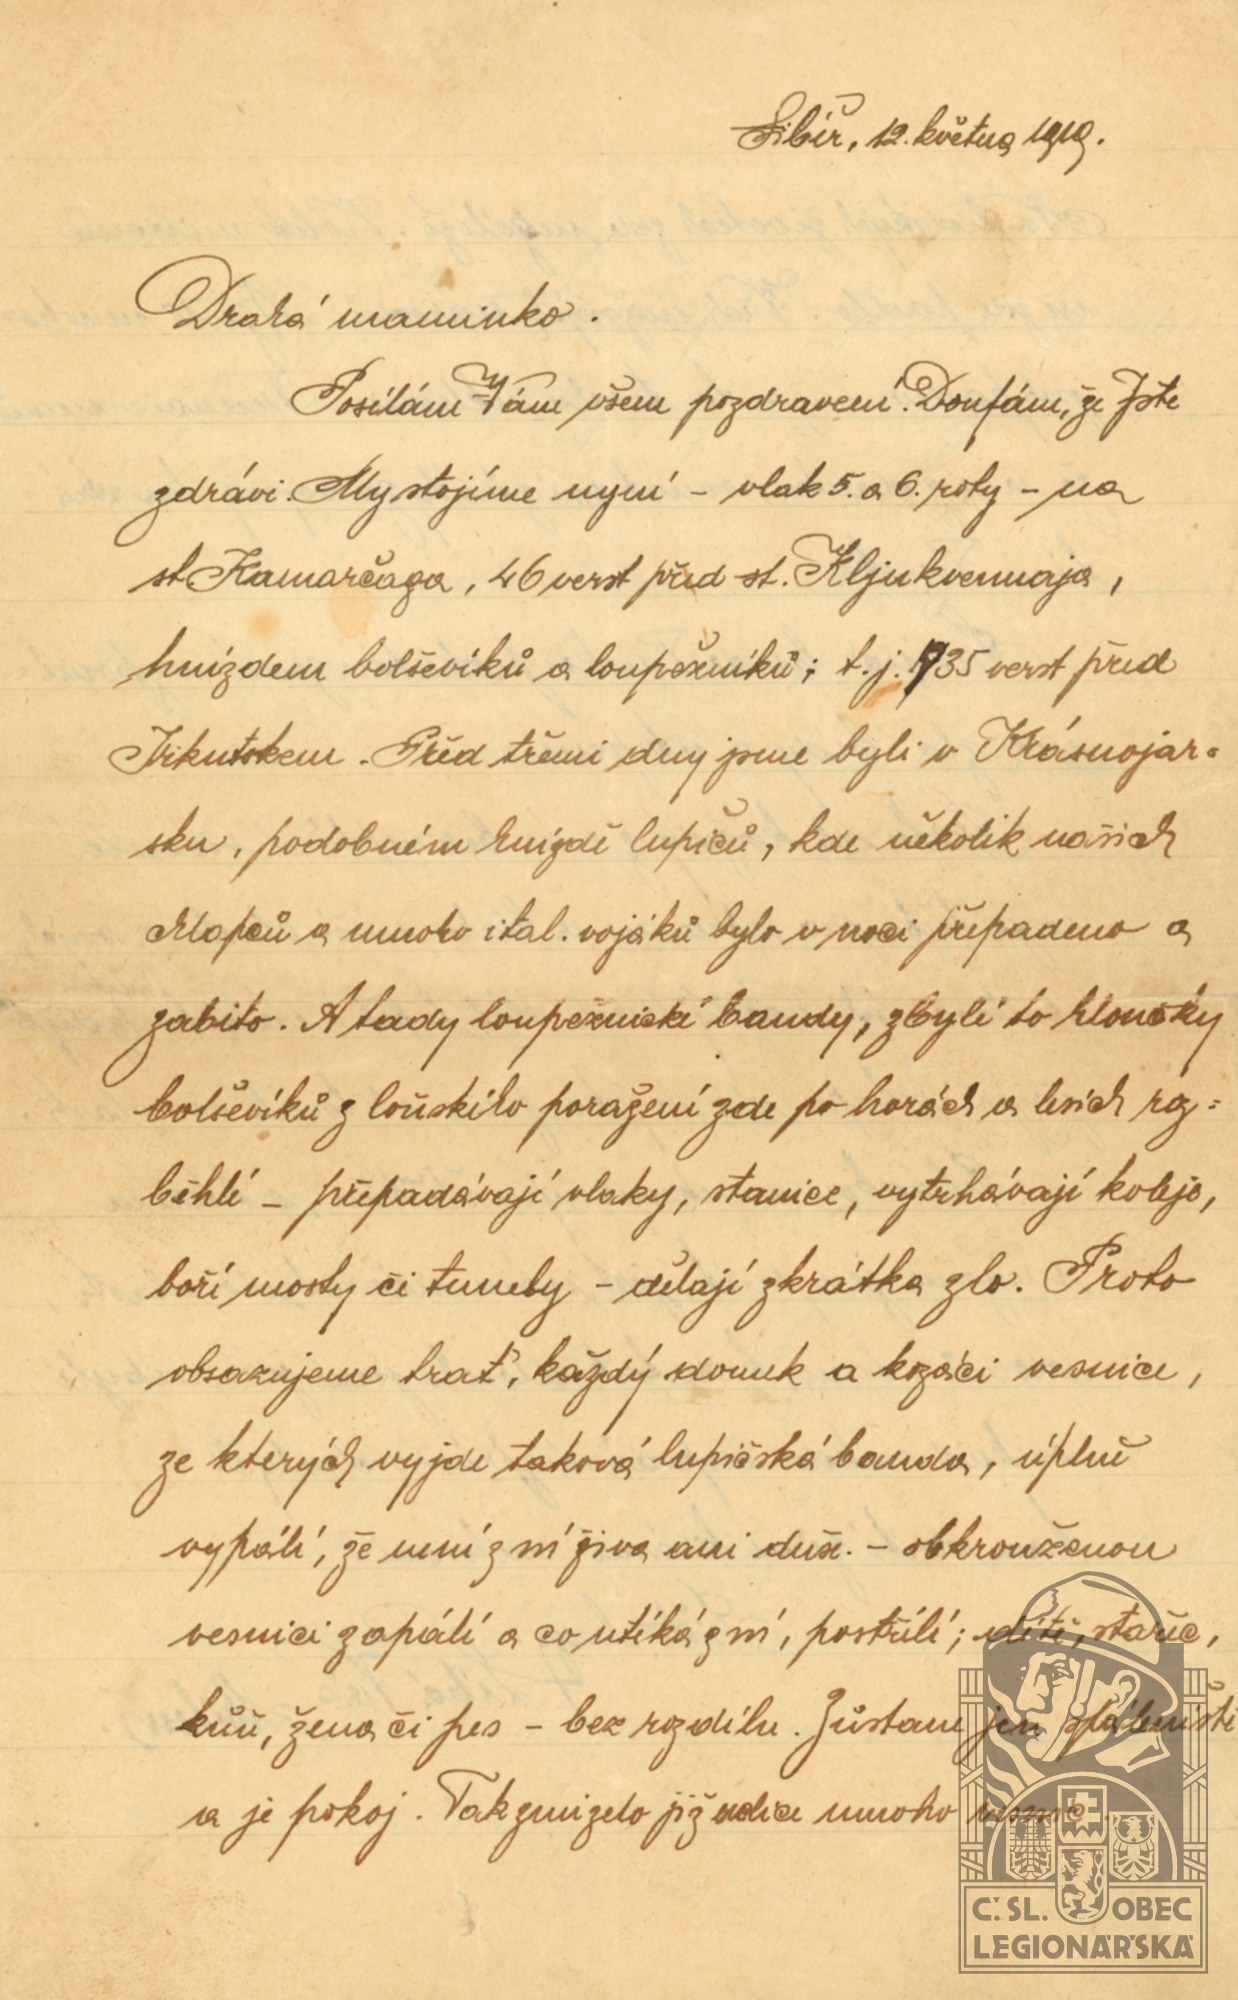 Sibiř, 12. května 1919.
Drahá maminko.
Posílám Vám všem pozdravení. Doufám, že Jste
zdrávi. My stojíme nyní – vlak 5. a 6. roty – na
st Kamarčaga, 46 verst před st. Kljukvennaja,
hnízdem bolševíků a loupežníků; t. j. 735 verst před
Irkutskem. Před třemi dny jsme byli v Krásnojar=
sku, podobném hnízdě lupičů, kde několik našich
chlapců a mnoho ital. vojáků bylo v noci přepadeno a
zabito. A tady loupežnické bandy, zbylé to hloučky
bolševíků z loňského poražení zde po horách a lesích roz=
běhlé – přepadávají vlaky, stanice, vytrhávají koleje,
boří mosty či tunely – dělají zkrátka zlo. Proto
obsazujeme trať, každý domek a kozáci vesnice,
ze kterých vyjde taková lupičská banda, úplně
vypálí, že není z ní živa ani duše. – obkrouženou
vesnici zapálí a co utíká z ní, postřílí; dítě, stařec,
kůň, žena či pes – bez rozdílu. Zůstane jen spáleniště
a je pokoj. Tak zmizelo již velice mnoho vesnic
Č. SL. OBEC
LEGIONÁŘSKÁ